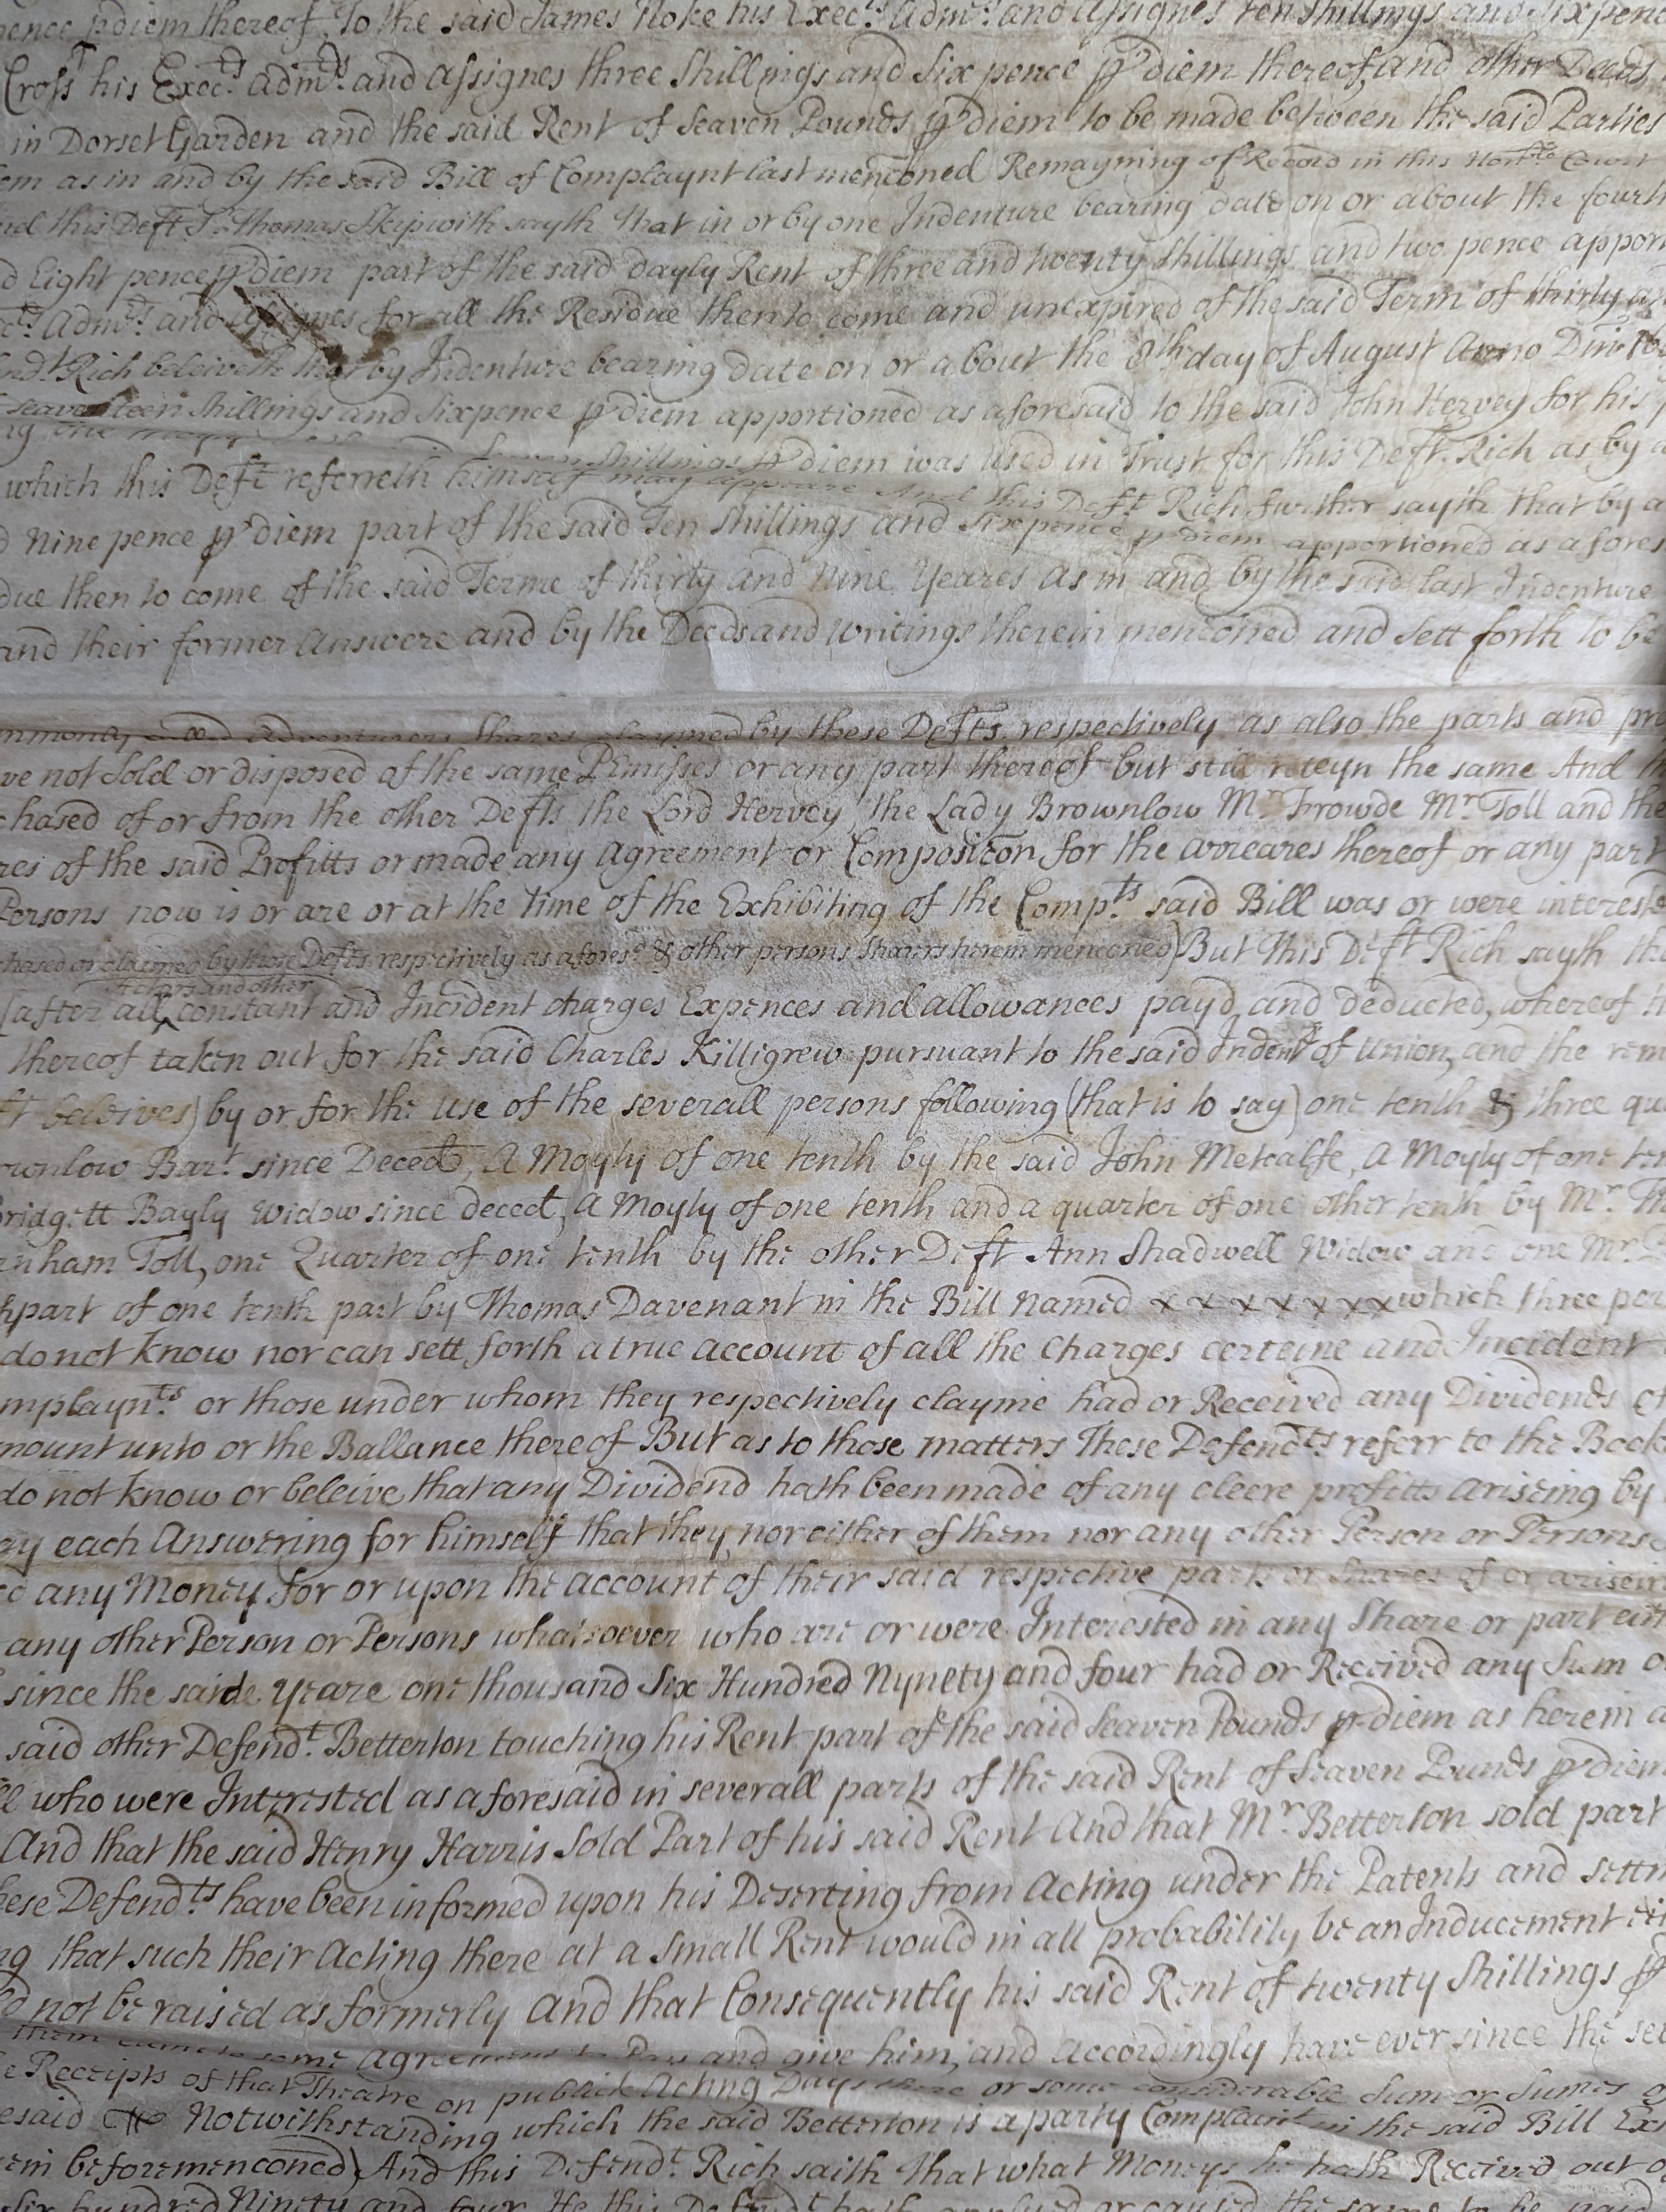 pence p diem thereof, To the said James Noke his Execrs. Admrs. and Assignes ten shillings and sixpence
Cross his Execrs. Admrs. and Assignes three Shillings and Six pence p diem thereof, and other Deeds
in Dorset Garden and the said Rent of Seaven Pounds p diem to be made between the said Parties
em as in and by the said Bill of Complaynt last menconed Remayning of Record in this Honble Court
nd this Deft Sr Thomas Skipwith sayth that in or by one Indenture bearing date on or about the fourth
d Eight pence p diem part of the said dayly Rent of three and twenty Shillings and two pence apporti
Admrs. and Assignes for all the Residue then to come and unexpired of the said Term of thirty
Rich beleiveth that by Indenture bearing date on or about the 8th day of August Anno Dni
seaventeen Shillings and Sixpence p diem apportioned as aforesaid to the said John Hervey for his
Shillings p diem was used in Trust for this Deft. Rich as by
which this Deft referreth himself may appeare And this Deft Rich further sayth that by a
d Nine pence p diem part of the said Ten Shillings and Sixpence p diem apportioned as afores
due then to come of the said Terme of thirty and Nine Yeares As in and by the said last Indenture
and their former Answere and by the Deeds and writings therein menconed and Sett forth to be
Adventurers Shares claymed by these Defts. respectively as also the parts and pro
ve not Sold or disposed of the same Pmisses or any part thereof but still reteyn the same And th
chased of or from the other Defts the Lord Hervey, the Lady Brownlow Mr. Frowde Mr. Toll and the
res of the said Profitts or made any Agreement or Composicon for the arreares thereof or any part
Persons now is or are or at the time of the Exhibiting of the Compts. said Bill was or were intereste
chased or claimed by those Defts respectively as aforesd. & other persons Sharers herein menconed) But this Deft Rich sayth tha
Actors and other
(after all constant and Incident charges Expences and allowances payd and deducted, whereof th
thereof taken out for the said Charles Killigrew pursuant to the said Indentre of Union, and the rem
ft beleives) by or for the use of the severall persons following (that is to say) one tenth & three qua
ownlow Bart. since Deced, A Moyty of one tenth by the said John Metcalfe, A Moyty of one ten
Bridgett Bayly Widow since deced, A Moyty of one tenth and a quarter of one other tenth by Mr. Th
nham Toll, one Quarter of one tenth by the other Deft Ann Shadwell Widow and one Mr.
hpart of one tenth part by Thomas Davenant in the Bill named x x x x x x x which three per
do not know nor can sett forth a true account of all the Charges certeine and Incident
mplaynts. or those under whom they respectively clayme had or Received any Dividends of
mount unto or the Ballance thereof But as to those matters These Defendts referr to the Book
do not know or beleive that any Dividend hath been made of any cleere profitts Ariseing by
ay each Answering for himself that they nor either of them nor any other Person or Persons
ed any Money for or upon the account of their said respective parts or Shares of or ariseing
any other Person or Persons whatsoever who are or were Interested in any Share or part eit
since the saide yeare one thousand Six Hundred Nynety and four had or Received any Sum o
said other Defendt. Betterton touching his Rent part of the said Seaven Pounds p diem as herein a
ll who were Interested as aforesaid in severall parts of the said Rent of Seaven Pounds p diem
And that the said Henry Harris Sold Part of his said Rent And that Mr Betterton sold part
hese Defendts. have been informed upon his Deserting from Acting under the Patents and settin
ng that such their Acting there at a Small Rent would in all probability be an Inducement
d not be raised as formerly And that Consequently his said Rent of twenty Shillings p
them came to some Agreement to Pay and give him, and accordingly have ever since the set
e Receipts of that Theatre on publick Acting Days there or some considerable Sum or Sumes o
esaid Notwithstanding which the said Betterton is a party Complaint in the said Bill Ex
ein beforemenconed) And this Defendt. Rich saith that what Moneys he hath Received out o
Six hundred Ninety and four He this Defendt hath applyed or caused the same to be paid